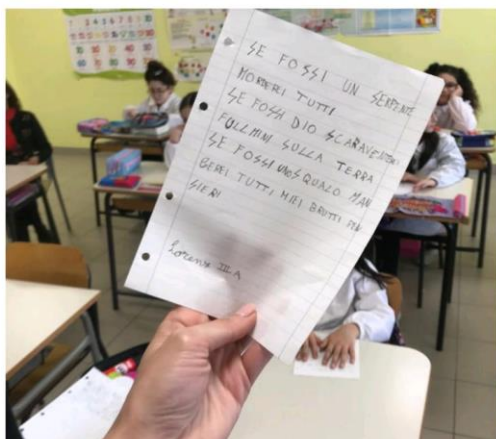 SE FOSSI UN SERPENTE
MORDEREI TUTTI
SE FOSSI DIO SCARAVENTEREI
FULMINI SULLA TERRA
SE FOSSI UNO SQUALO MAN
GEREI TUTTI MIEI BRUTTI PEN
SIERI
Lorenzo III A